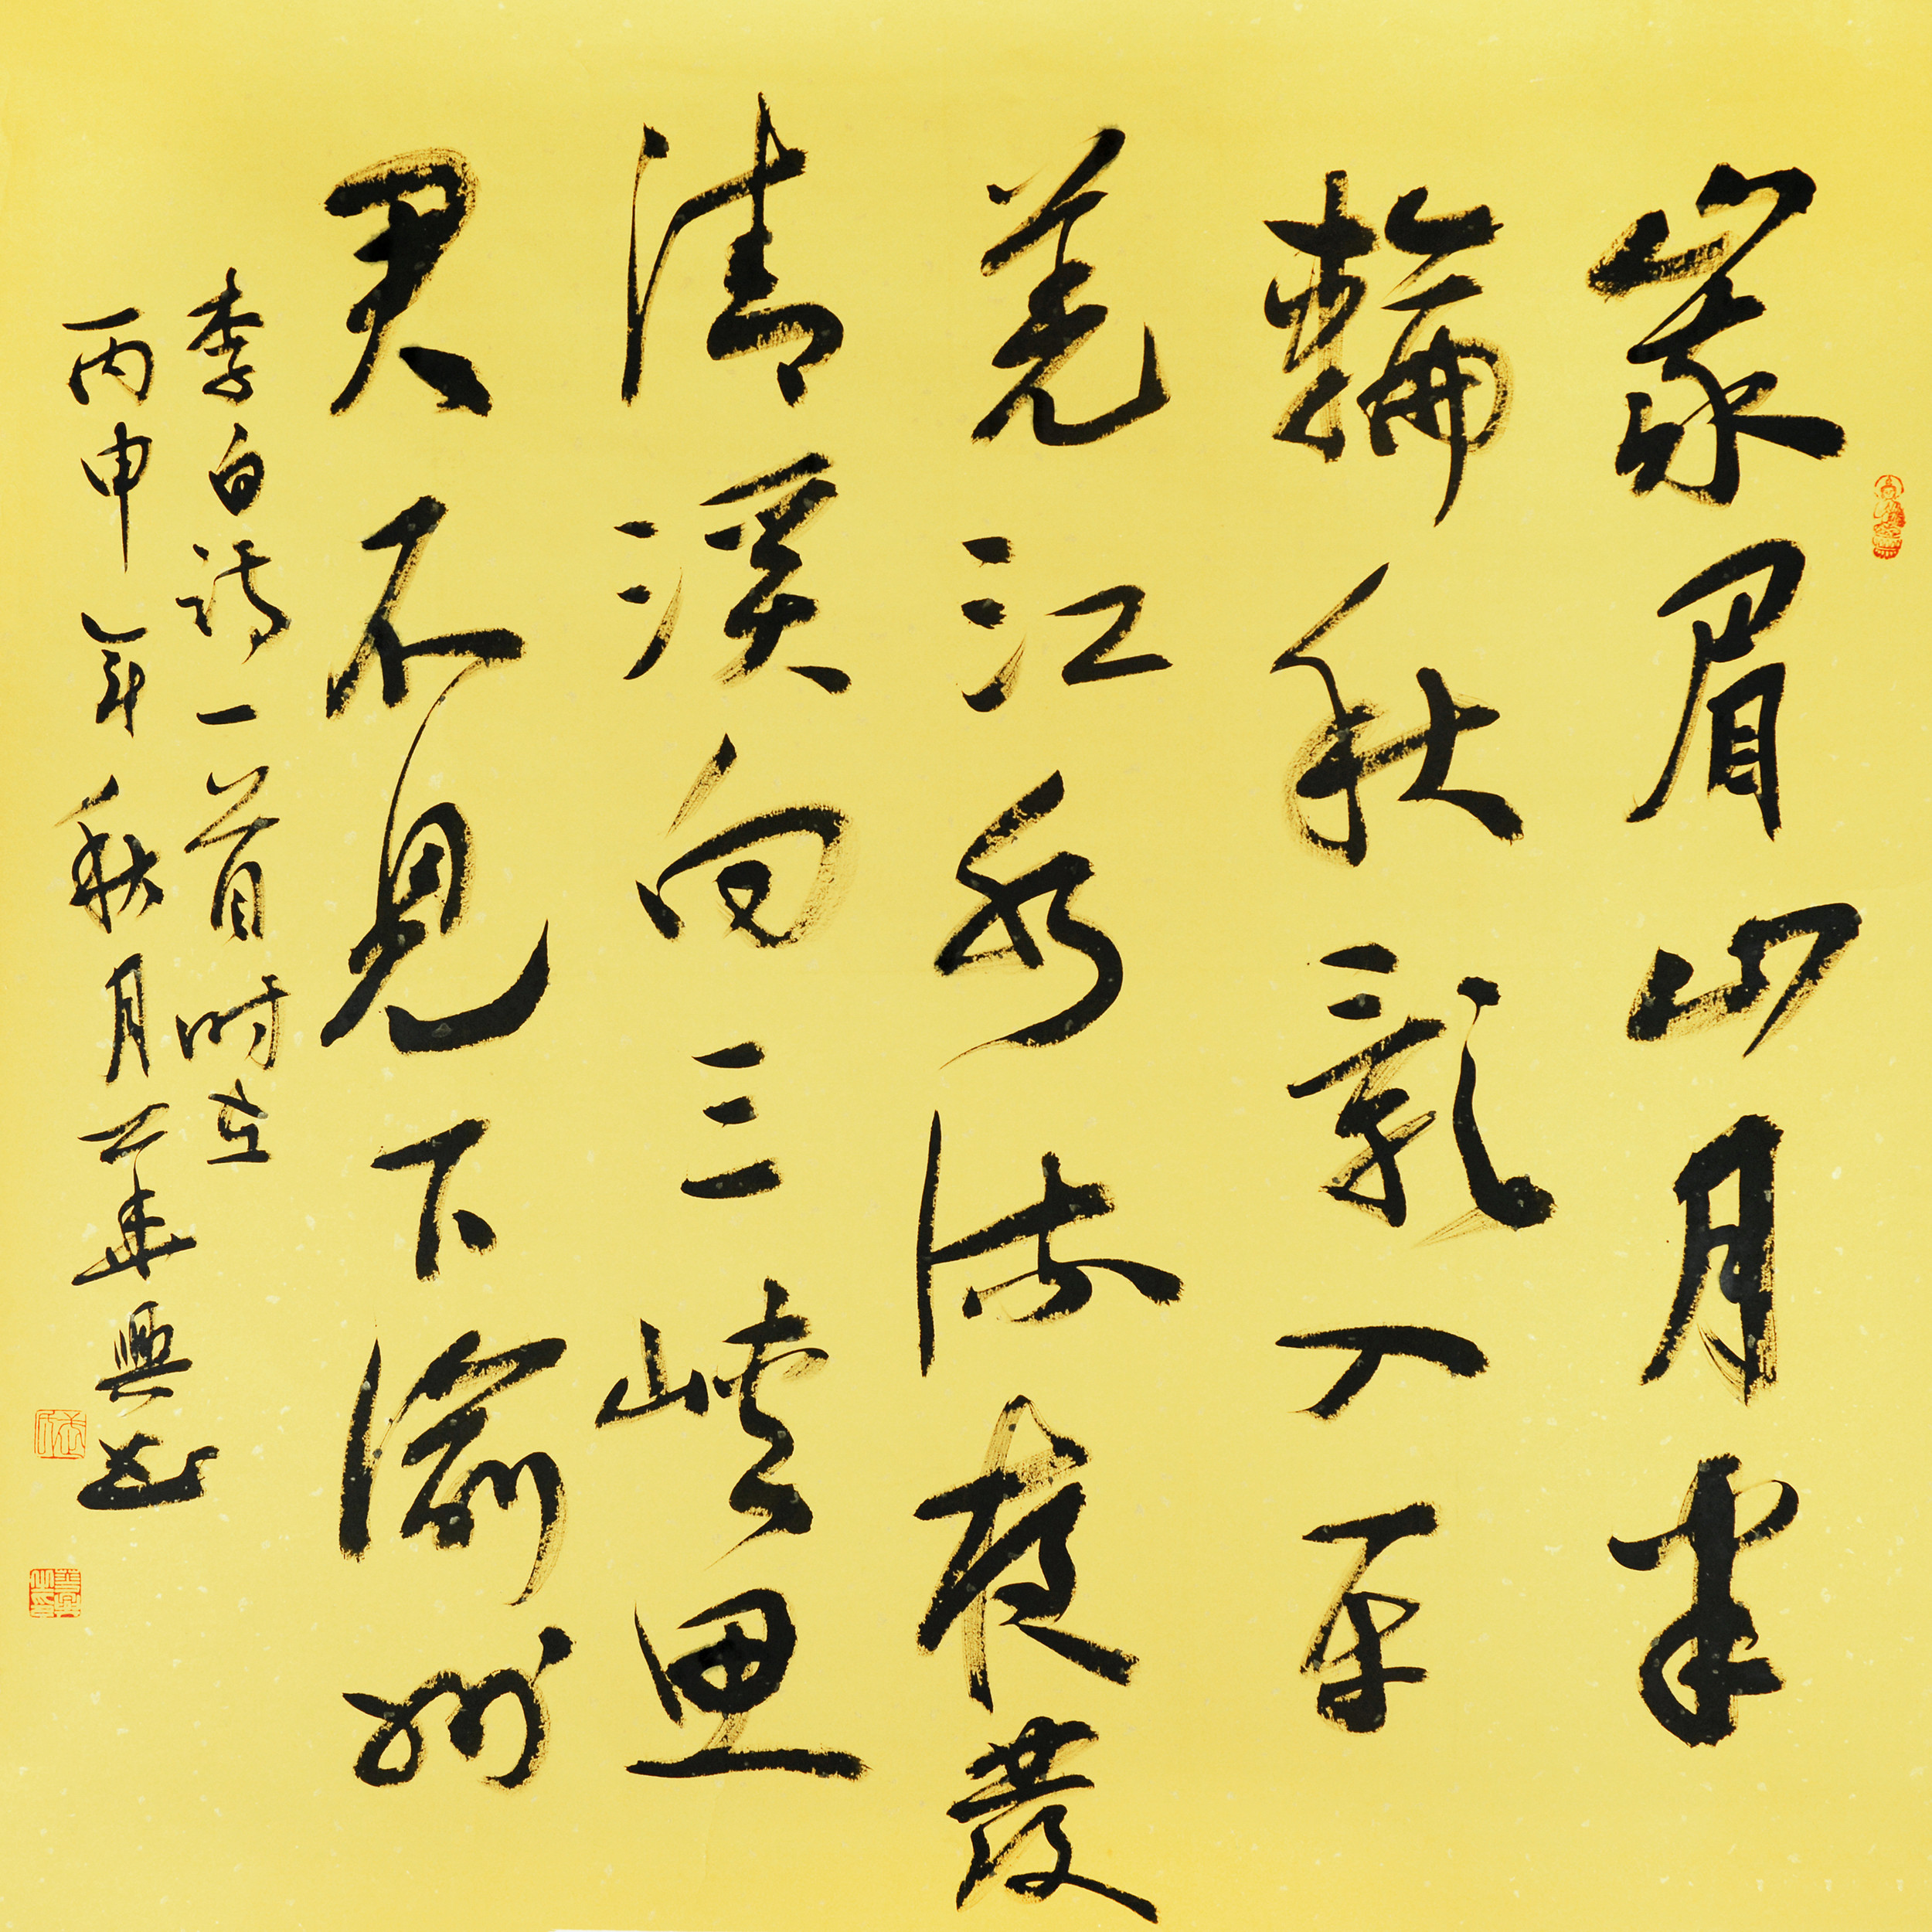 峩眉山月半
輪秋影入平
羌江水流夜發
清溪向三峽思
君不見下渝州
李白詩一首時在
丙申年秋月興